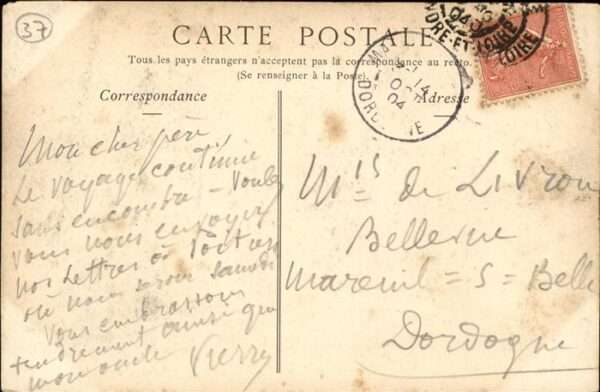 37
CARTE POSTALE
Tous les pays étrangers n'acceptent pas la correspondance au recto.
(Se renseigner à la Poste)
Correspondance
Adresse
14
04
INDRE-ET-LOIRE
Mon cher père
Le voyage continue
sans encombre - Voulez
vous nous envoyer
nos Lettres à Poitiers
où nous serons samedi
Vous embrassons
tendrement ainsi que
mon oncle Pierre
Mis de Livron
Bellevue
Mareuil = S = Belle
Dordogne